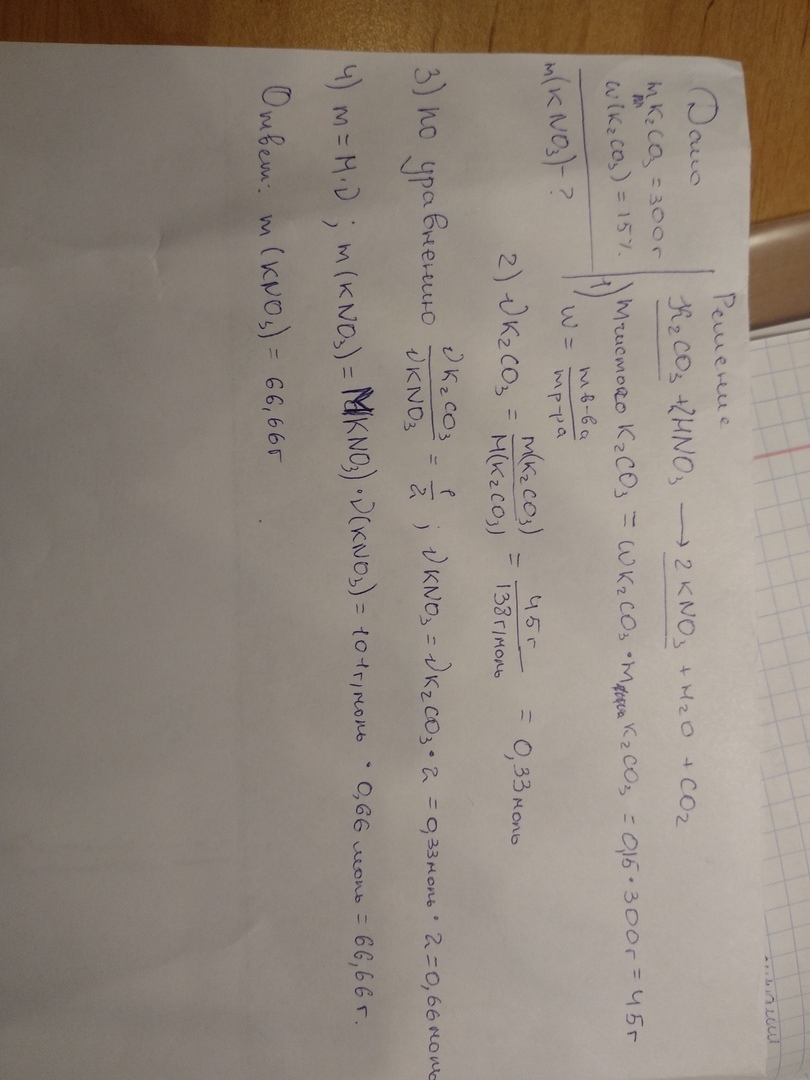 Решение
Дано
K₂CO₃ + 2HNO₃ → 2KNO₃ + H₂O + CO₂
mK₂CO₃ = 300г
w(K₂CO₃) = 15%.
m(KNO₃) - ?
1) mчистого K₂CO₃ = wK₂CO₃ · m K₂CO₃ = 0,15 · 300г = 45г
w = mв-ва / mр-ра
2) νK₂CO₃ = m(K₂CO₃) / M(K₂CO₃) = 45г / 138г/моль = 0,33моль
3) по уравнению νK₂CO₃ / νKNO₃ = 1/2 ; νKNO₃ = νK₂CO₃ · 2 = 0,33моль · 2 = 0,66моль
4) m = M·ν ; m(KNO₃) = M(KNO₃) · ν(KNO₃) = 101г/моль · 0,66 моль = 66,66г.
Ответ: m(KNO₃) = 66,66г